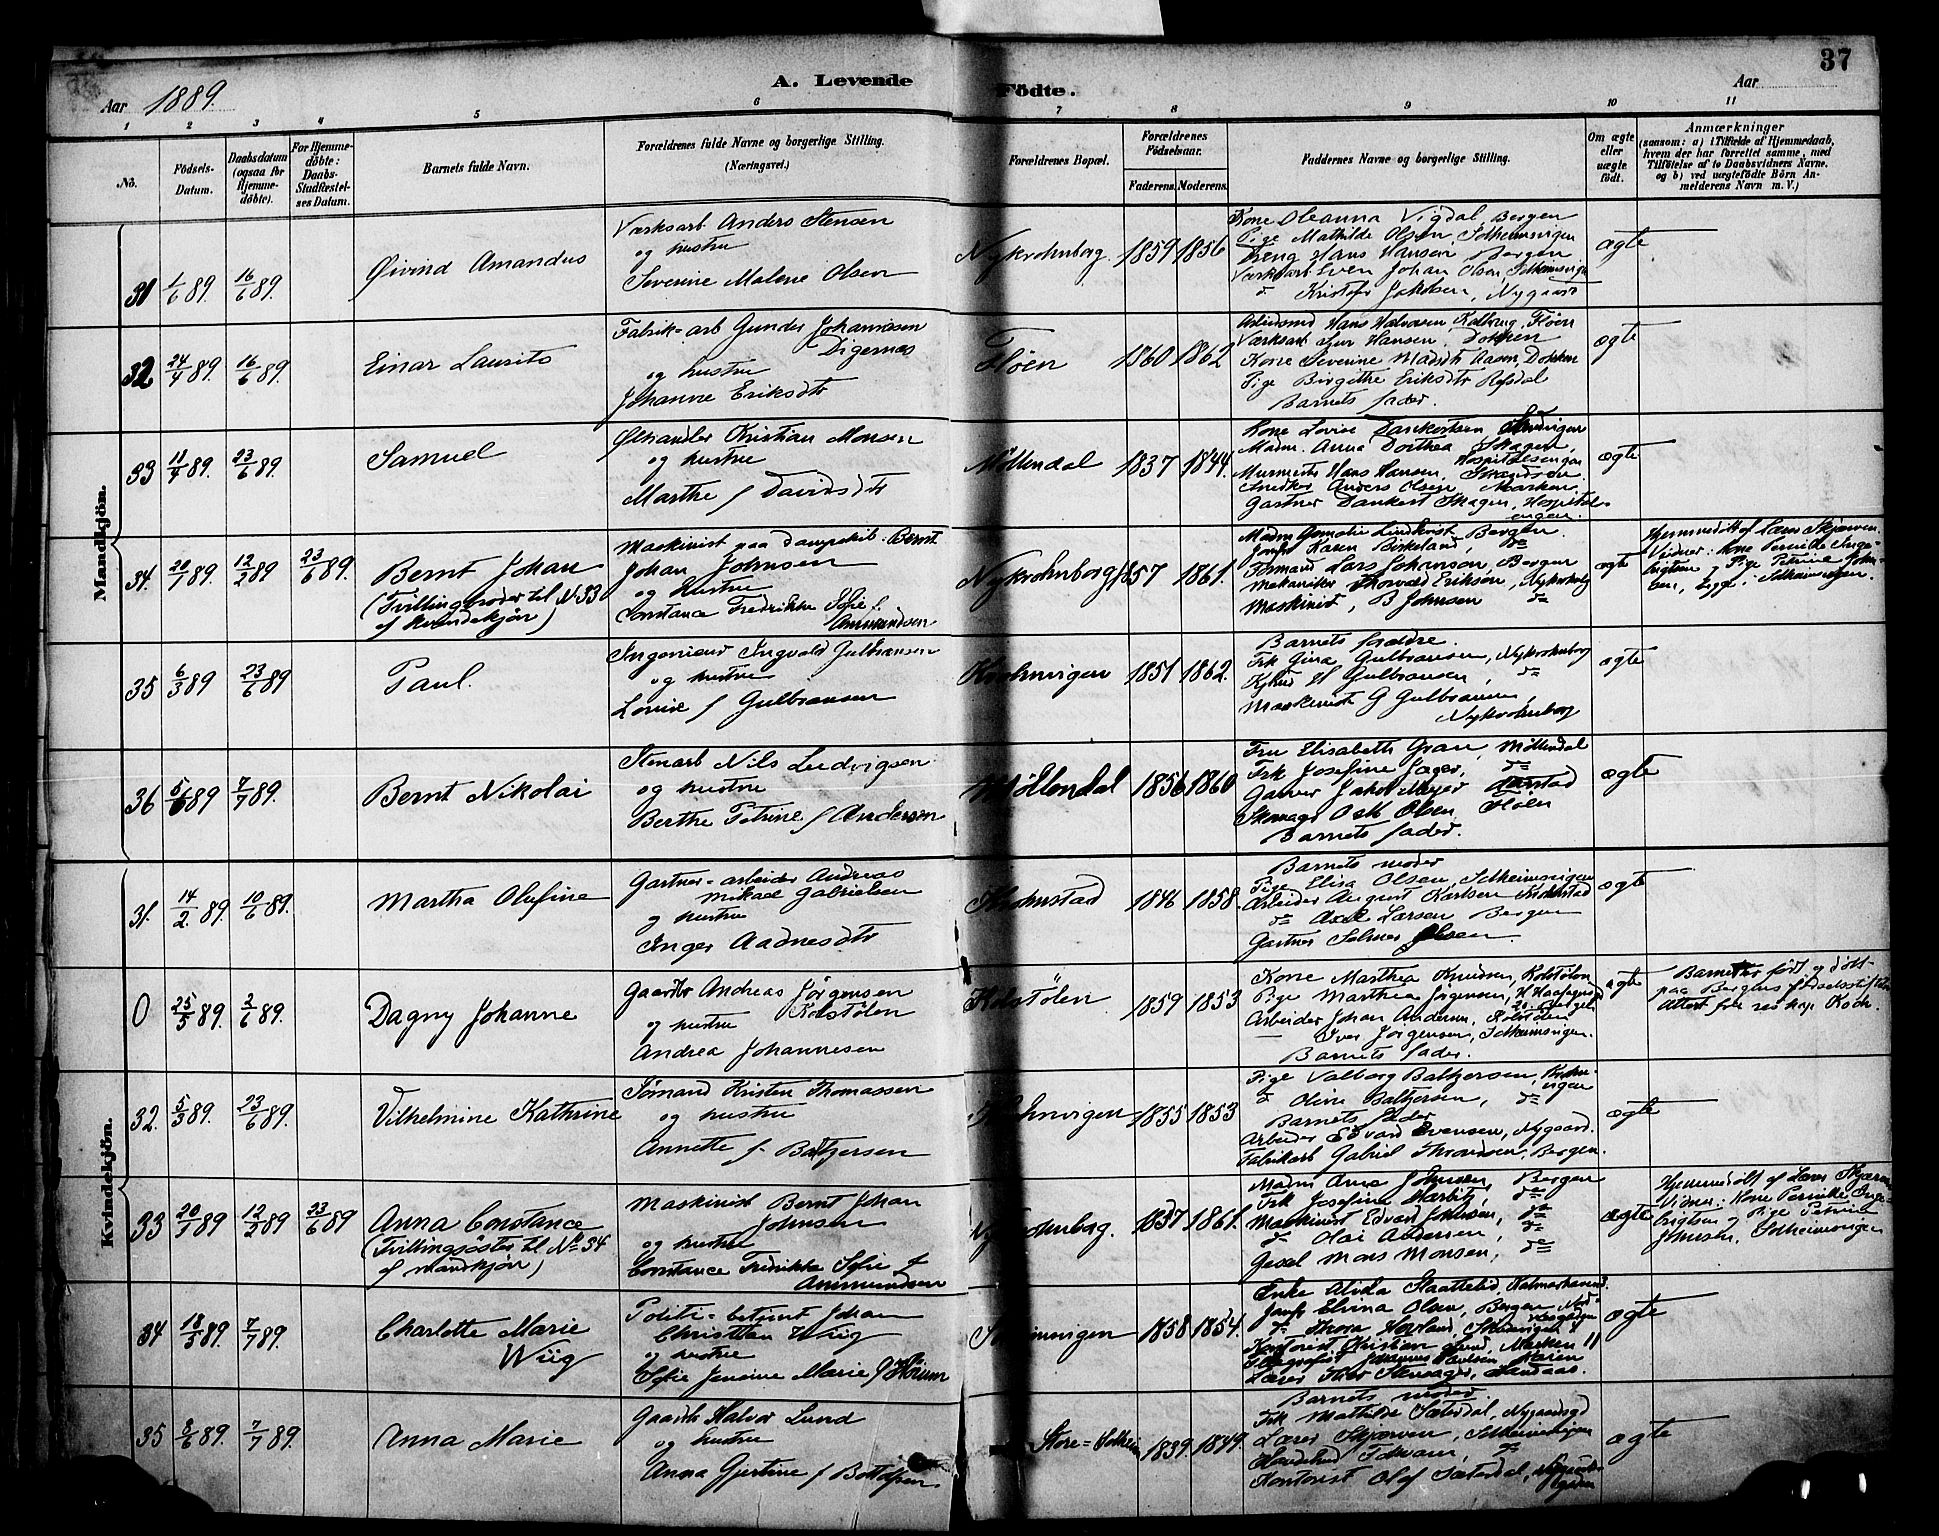 37
Aar 1889.
A. Levende Födte.
Aar
1 2 3 4 5 6 7 8 9 10 11
No.
Födsels-Datum.
Daabsdatum (ogsaa for Hjemme-døbte).
For Hjemme-døbte: Daabs-Stadfæstel-ses Datum.
Barnets fulde Navn.
Forældrenes fulde Navne og borgerlige Stilling. (Næringsvei.)
Forældrenes Bopæl.
Forældrenes Födselsaar.
Faderens. Moderens.
Faddernes Navne og borgerlige Stilling.
Om ægte eller uægte födt.
Anmærkninger
(saasom: a) i Tilfælde af Hjemmedaab,
hvem der har forrettet samme, med
Tilföielse af to Daabsvidners Navne,
og b) ved uægtefödte Börn An-
melderens Navn m. V.)
Mandkjön.
31 1/6 89. 16/6 89.
Øivind Amandus
Værksarb Anders Stensen
og hustru
Severine Malene Olsen
Nykrohnborg. 1859 1856
Kone Oleanna Vigdal, Bergen
Pige Mathilde Olsen, Solheimsvigen
Dreng Hans Hansen Bergen
Værksarb. Sven Johan Olsen Solheimsvig
do Kristofer Jakobsen, Nygaard
ægte
32 24/4 89. 16/6 89.
Einar Laurits
Fabrik-arb Gunder Johannssen
Digernæs
og hustru
Johanne Eriksdtr
Fløen 1860 1862
Hans Halvorsen, Kalbrug, Fløen
Værksarb Hansen, Dokken
Kone Severine Madsdtr Aasen, Dokken
Pige Birgithe Eriksdtr Refsdal
Barnets fader.
ægte
33 11/4 89. 23/6 89.
Samuel
Ølhandler Kristian Monsen
og hustru
Marthe f Davidsdtr
Møllendal 1837 1844.
Kone Lovise Dankertsen
Madm. Anna Dorthea Skagen,
Hospitalsengen
Murmester Hans Hansen,
Snedker Anders Olsen, Marken
Gartner Dankert Skagen, Hospitals-
engen.
ægte
34. 20/1 89. 12/2 89 23/6 89.
Bernt Johan
(Tvillingbroder til N 33
af Kvindekjön)
Maskinist paa Dampskib. Bernt
Johan Johnsen
og Hustru
Constance Fredrikke Sofie f.
Ammundsen
Nykrohnborg 1857 1861.
Madm Lindkvist, Bergen.
Jomfr Karen Birkeland, do
Formand Lars Johannson, Bergen
Mekaniker Thorvald Erikson, Nykrohnbg
Maskinist, B Johnsen do
ægte
Hjemmedöbt af Lærer Skjærven.
Vidner: Kone Pernille Inge-
brigtsen og Pige Petrine John-
sen, begge i Solheimsvigen.
35 6/3 89 23/6 89
Paul.
Ingeniør Ingvald Gulbransen
og hustru
Lovise f Gulbransen
Krohnvigen 1851 1862.
Barnets forældre.
Frk Gina Gulbransen, Nykrohnborg
H Gulbransen, do
Maskinist G Gulbransen,
Nykrohnborg
ægte
36 5/6 89 7/7 89.
Bernt Nikolai
Stenarb Nils Ludvigsen
og hustru
Berthe Petrine f Andersen
Møllendal 1856 1860
Fru Elisabeth Gran, Møllendal
Frk Josefine Jæger, do
Garver Jakob Meyer Aarstad
Skomager Olsen Fløen
Barnets fader.
ægte
Kvindekjön.
31. 14/2 89 10/6 89.
Martha Olufine
Gartner-arbeider Andreas
Mikael Gabrielsen
og hustru
Inger Aadnesdtr
Krohnstad 1846 1858.
Barnets moder
Pige Elisa Olsen, Solheimsvigen
Arbeider August Karlsen Krohnstad
do Axel Larsen Bergen
Gartner Selmer Olsen.
ægte
0 25/5 89. 2/6 89.
Dagny Johanne
Gaardbr Andreas Jörgensen
Kolstølen
og hustru
Andrea Johannesen
Kolstølen 1859 1853
Kone Marthea Knudsen, Kolstølen
Pige Marthea Jörgensen,
Arbeider Johan Andersen, Kolstølen
— Iver Jörgensen, Solheimsvigen.
Barnets fader.
ægte
Barnet er født og döbt
paa Bergens fødselsstiftelse
Attest fra res. kap. Koch.
32. 5/3 89. 23/6 89.
Vilhelmine Kathrine
Sømand Kristen Thomassen
og hustru
Annette f. Baltzersen
Krohnvigen 1855 1853
Pige Valborg Baltzersen, Krohn-
vigen
do Oline Baltzersen, do
Barnets fader
Arbeider Edvard Evensen, Nygaard.
Fabrikarb Gabriel Thronsen, Bergen.
ægte
33 20/1 89 12/2 89 23/6 89
Anna Constance
(Tvillingsöster til No 34
af mandkjön)
Maskinist Bernt Johan
Johnsen
og hustru
Constance Fredrikke Sofie f
Ammundsen
Nykrohnborg. 1857 1861.
Madm Anna Johnsen, Bergen
Frk Josefine Harbitz, do
Maskinist Edvard Johnsen, do
do Olai Andersen, do
Gesel Mons Monsen, do
ægte
Hjemmedöbt af Lærer Skjærven
Vidner: Kone Pernille Inge-
brigtsen og Pige Petrine
Johnsen, Solheimsvigen
34 18/5 89. 7/7 89.
Charlotte Marie
Wiig
Politi-betjent Johan
Christian Wiig
og hustru
Sofie Jensine Marie f
Solheimsvigen 1858 1854.
Enke Alida Slaattelid, Kalmarhaund.
Jomfr Elvina Olsen, Bergen
do Thora Hovland, Solheimsvigen
Kontorist Kristian Lund, Marken 11
Telegrafist Johannes Paulsen,
Lærer Stenager, Landaas.
ægte
35 8/6 89. 7/7 89.
Anna Marie
Gaardb Halvor Lund
og hustru
Anna Gjertine f Bottolfsen.
Store-Solheim 1839. 1849.
Barnets moder
Frk Mathilde Sæterdal, Nygaardsgd
Lærer Skjærven, Solheimsvigen
do
Kontorist Olaf Sæterdal, Nygaards-
gaden
ægte